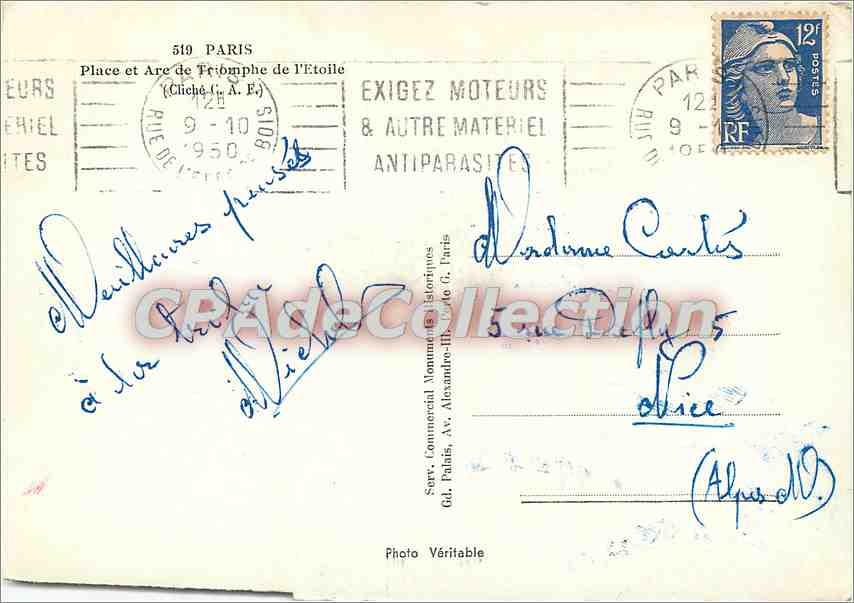 519 PARIS
Place et Arc de Triomphe de l'Etoile
(Cliché C. A. F.)
EURS
ERIEL
ITES
PARIS
12H
9 - 10
1950
RUE DE L'
BOIS
EXIGEZ MOTEURS
& AUTRE MATERIEL
ANTIPARASITES
PAR
12
9 - 1
1950
RUE D
12F
POSTES
RF
Meilleures pensées
à
Michel
Serv. Commercial Monuments Historiques
Gd. Palais, Av. Alexandre-III. Porte G. Paris
Madame Cortès
5 rue Defly 5
Nice
(Alpes M.)
CPAdeCollection
Photo Véritable